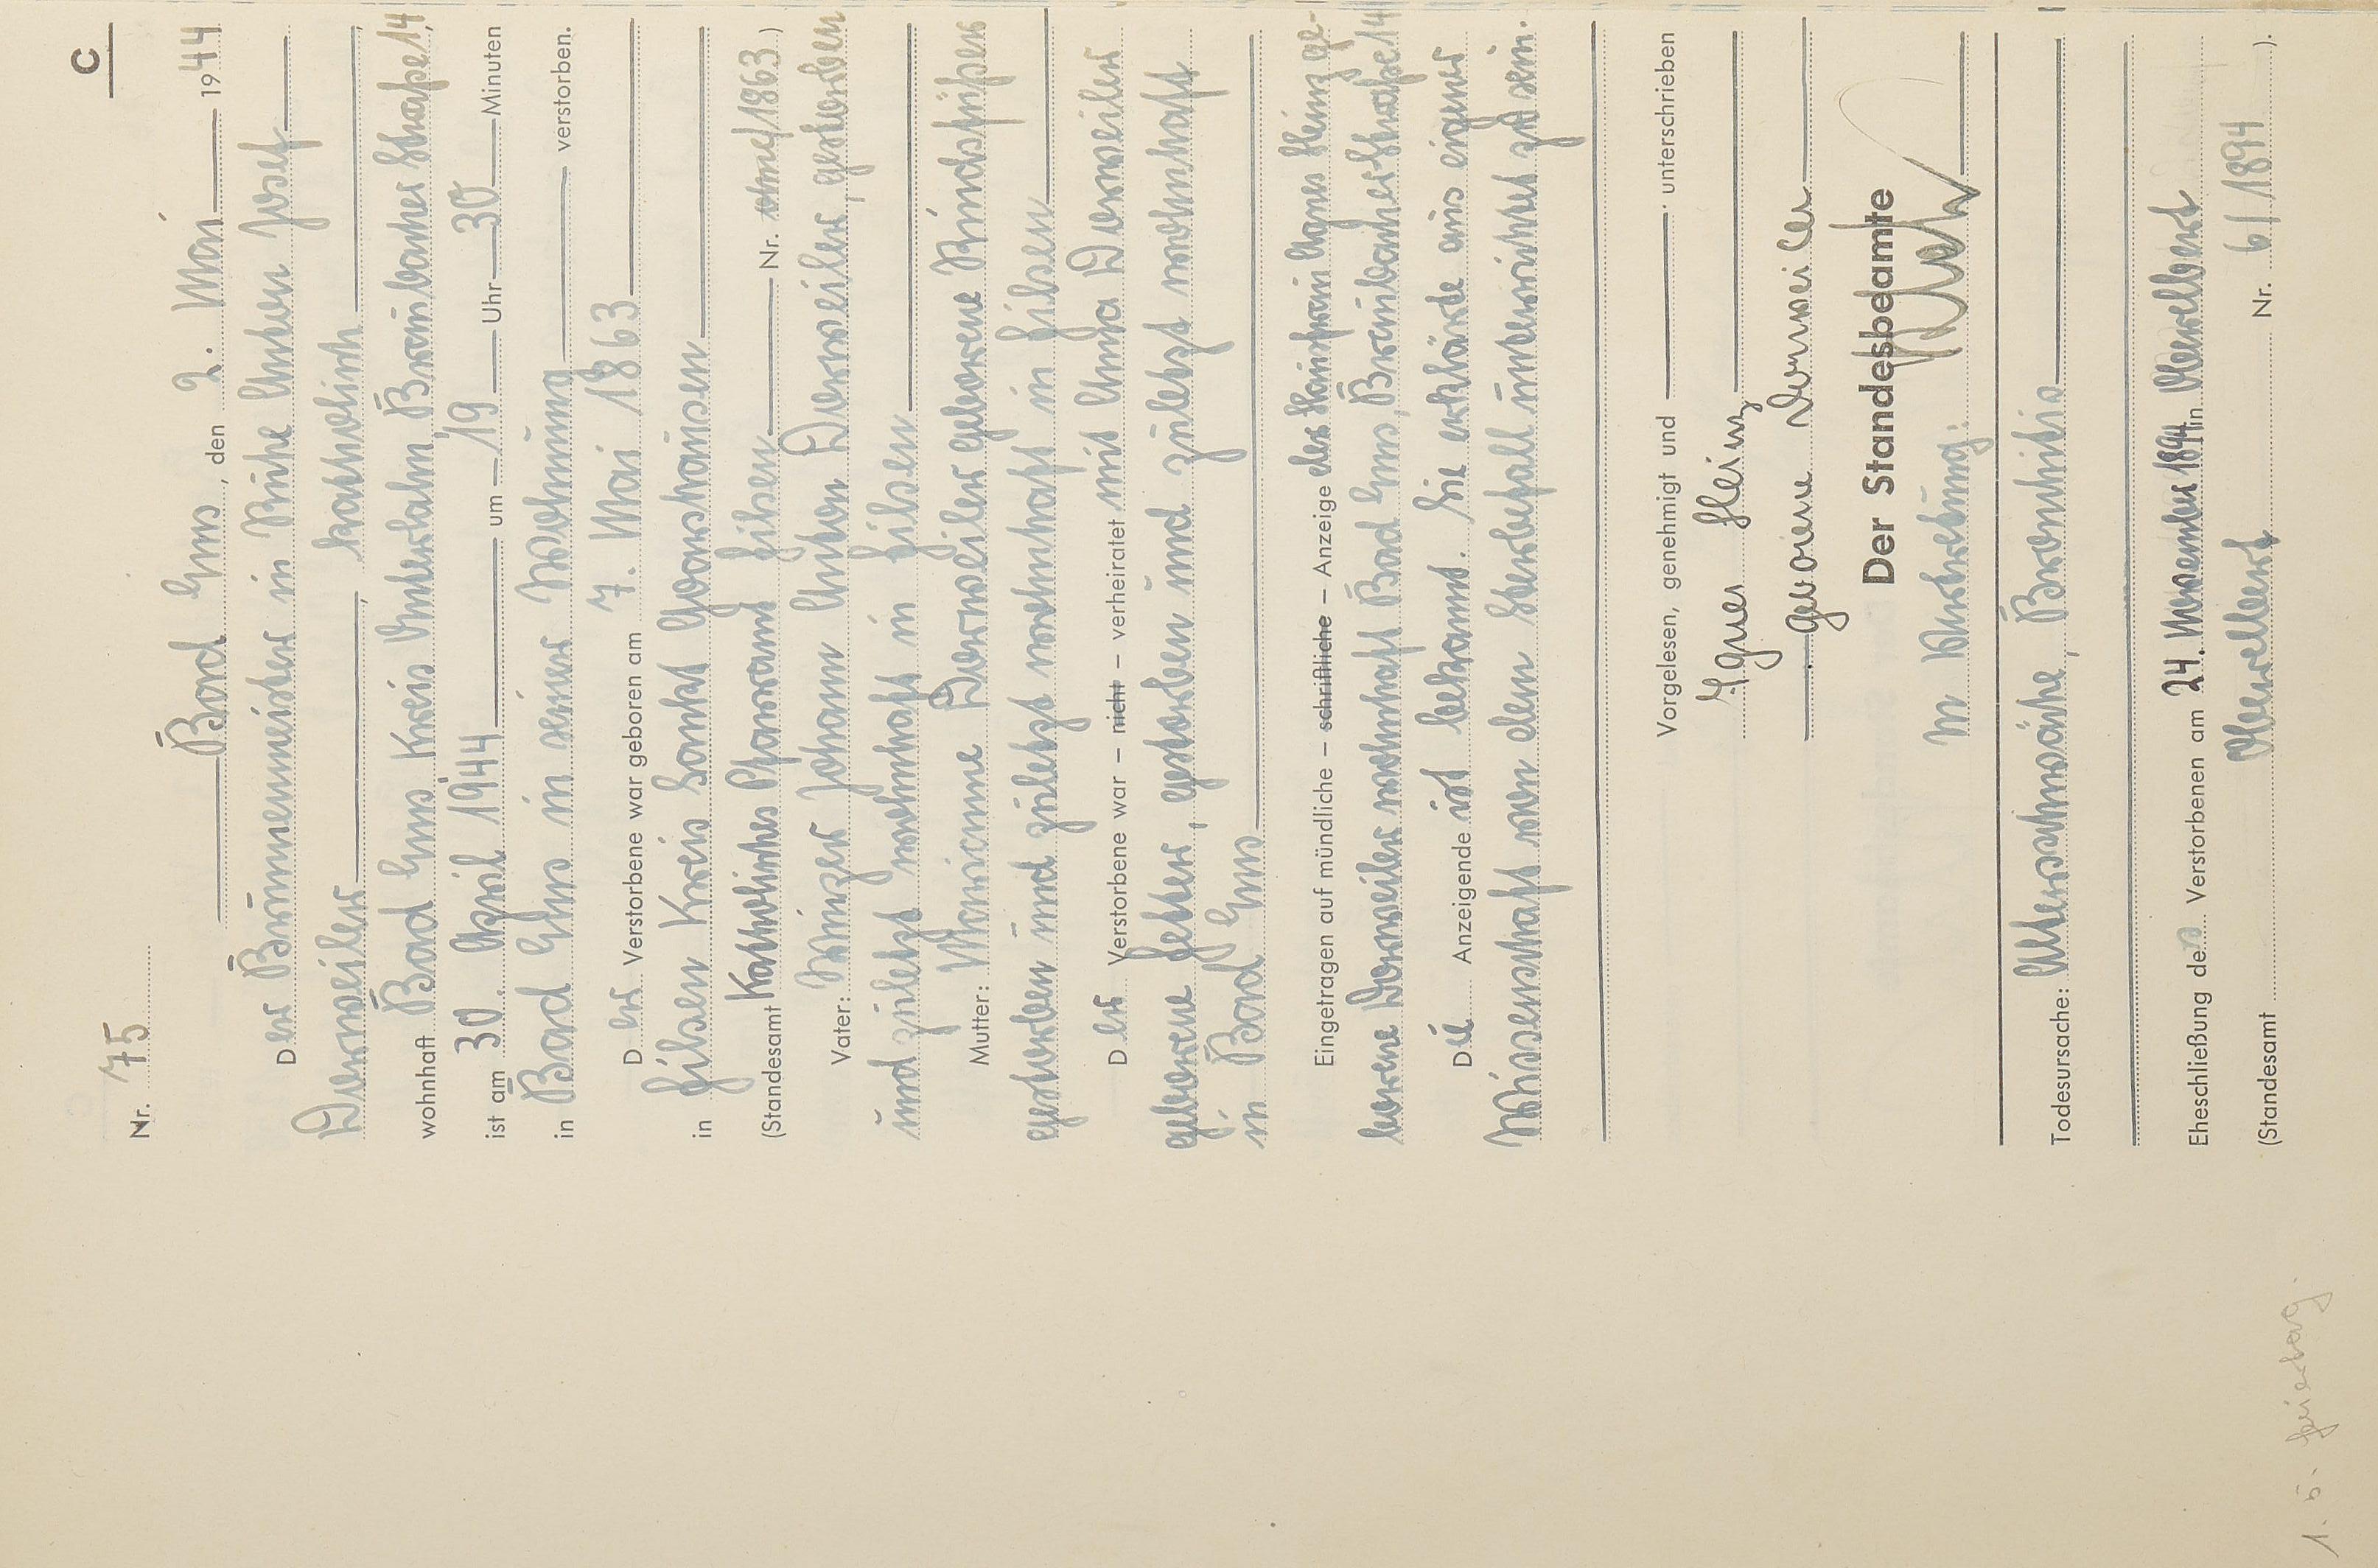 C
Nr. 75
Bad Ems, den 2. Mai 1944
Der Brunnenmeister in Ruhe Anton Josef
Dorweiler, katholisch,
wohnhaft Bad Ems Kreis Unterlahn Braubacher Straße 14,
ist am 30. April 1944 um 19 Uhr 30 Minuten
in Bad Ems in seiner Wohnung verstorben.
Der Verstorbene war geboren am 7. Mai 1863
in Filsen Kreis Sankt Goarshausen
(Standesamt Katholisches Pfarramt Filsen Nr. ohne/1863)
Vater: Winzer Johann Anton Dorweiler, gestorben
und zuletzt wohnhaft in Filsen
Mutter: Marianne Dorweiler geborene
gestorben und zuletzt wohnhaft in Filsen
Der Verstorbene war – nicht – verheiratet mit Anna Dorweiler
geborene Fetter, gestorben und zuletzt wohnhaft
in Bad Ems
Eingetragen auf mündliche – schriftliche – Anzeige der Hausfrau Agnes Heinz ge-
borene Dorweiler wohnhaft Bad Ems, Braubacher Straße 14
Die Anzeigende ist bekannt. Sie erklärte aus eigener
Wissenschaft von dem Sterbefall unterrichtet zu sein.
Vorgelesen, genehmigt und unterschrieben
Agnes Heinz
geborene Dorweiler
Der Standesbeamte
In Vertretung:
Todesursache: Altersschwäche, Bronchitis
Eheschließung des Verstorbenen am 24. November 1894 in Oberelbert
(Standesamt Oberelbert Nr. 6/1894).